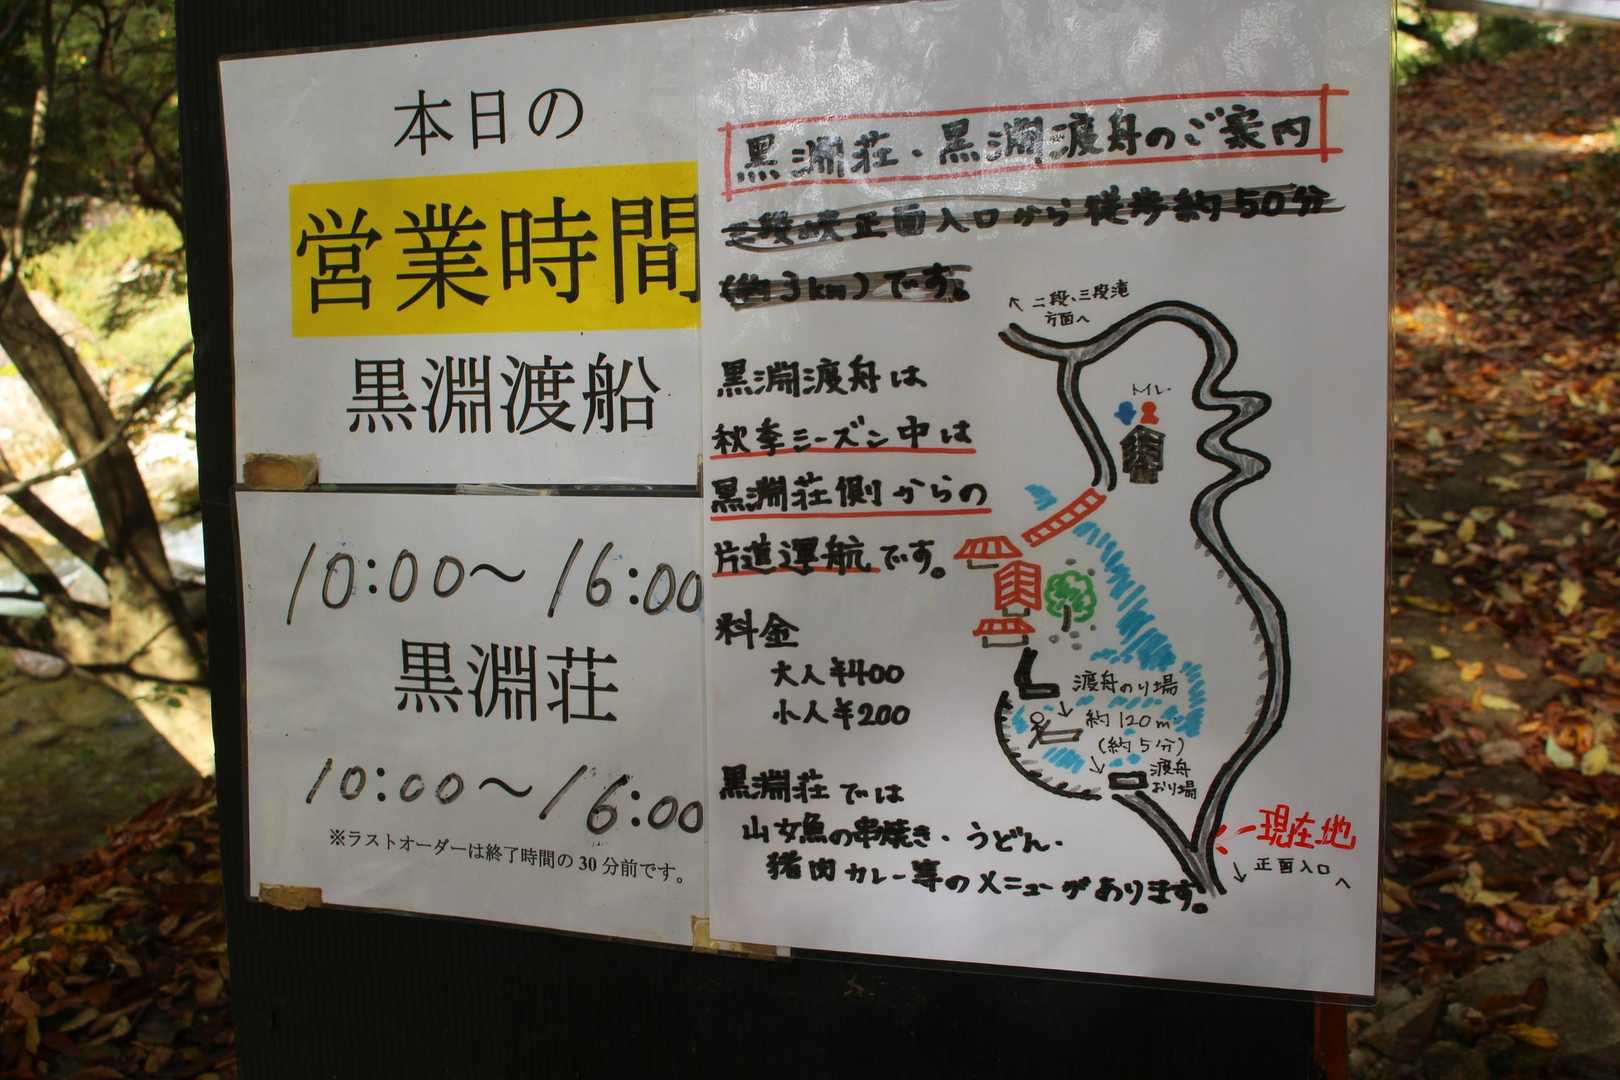 本日の
営業時間
黒淵渡船
10:00～16:00
黒淵荘
10:00～16:00
※ラストオーダーは終了時間の30分前です。
黒淵荘・黒淵渡舟のご案内
三段峡正面入口から徒歩約50分
(約3km)です。
黒淵渡舟は
秋季シーズン中は
黒淵荘側からの
片道運航です。
料金
大人¥400
小人¥200
黒淵荘では
山女魚の串焼き・うどん・
猪肉カレー等のメニューがあります。
↖二段、三段滝
方面へ
トイレ
渡舟のり場
約120m
(約5分)
渡舟
おり場
現在地
↓正面入口へ